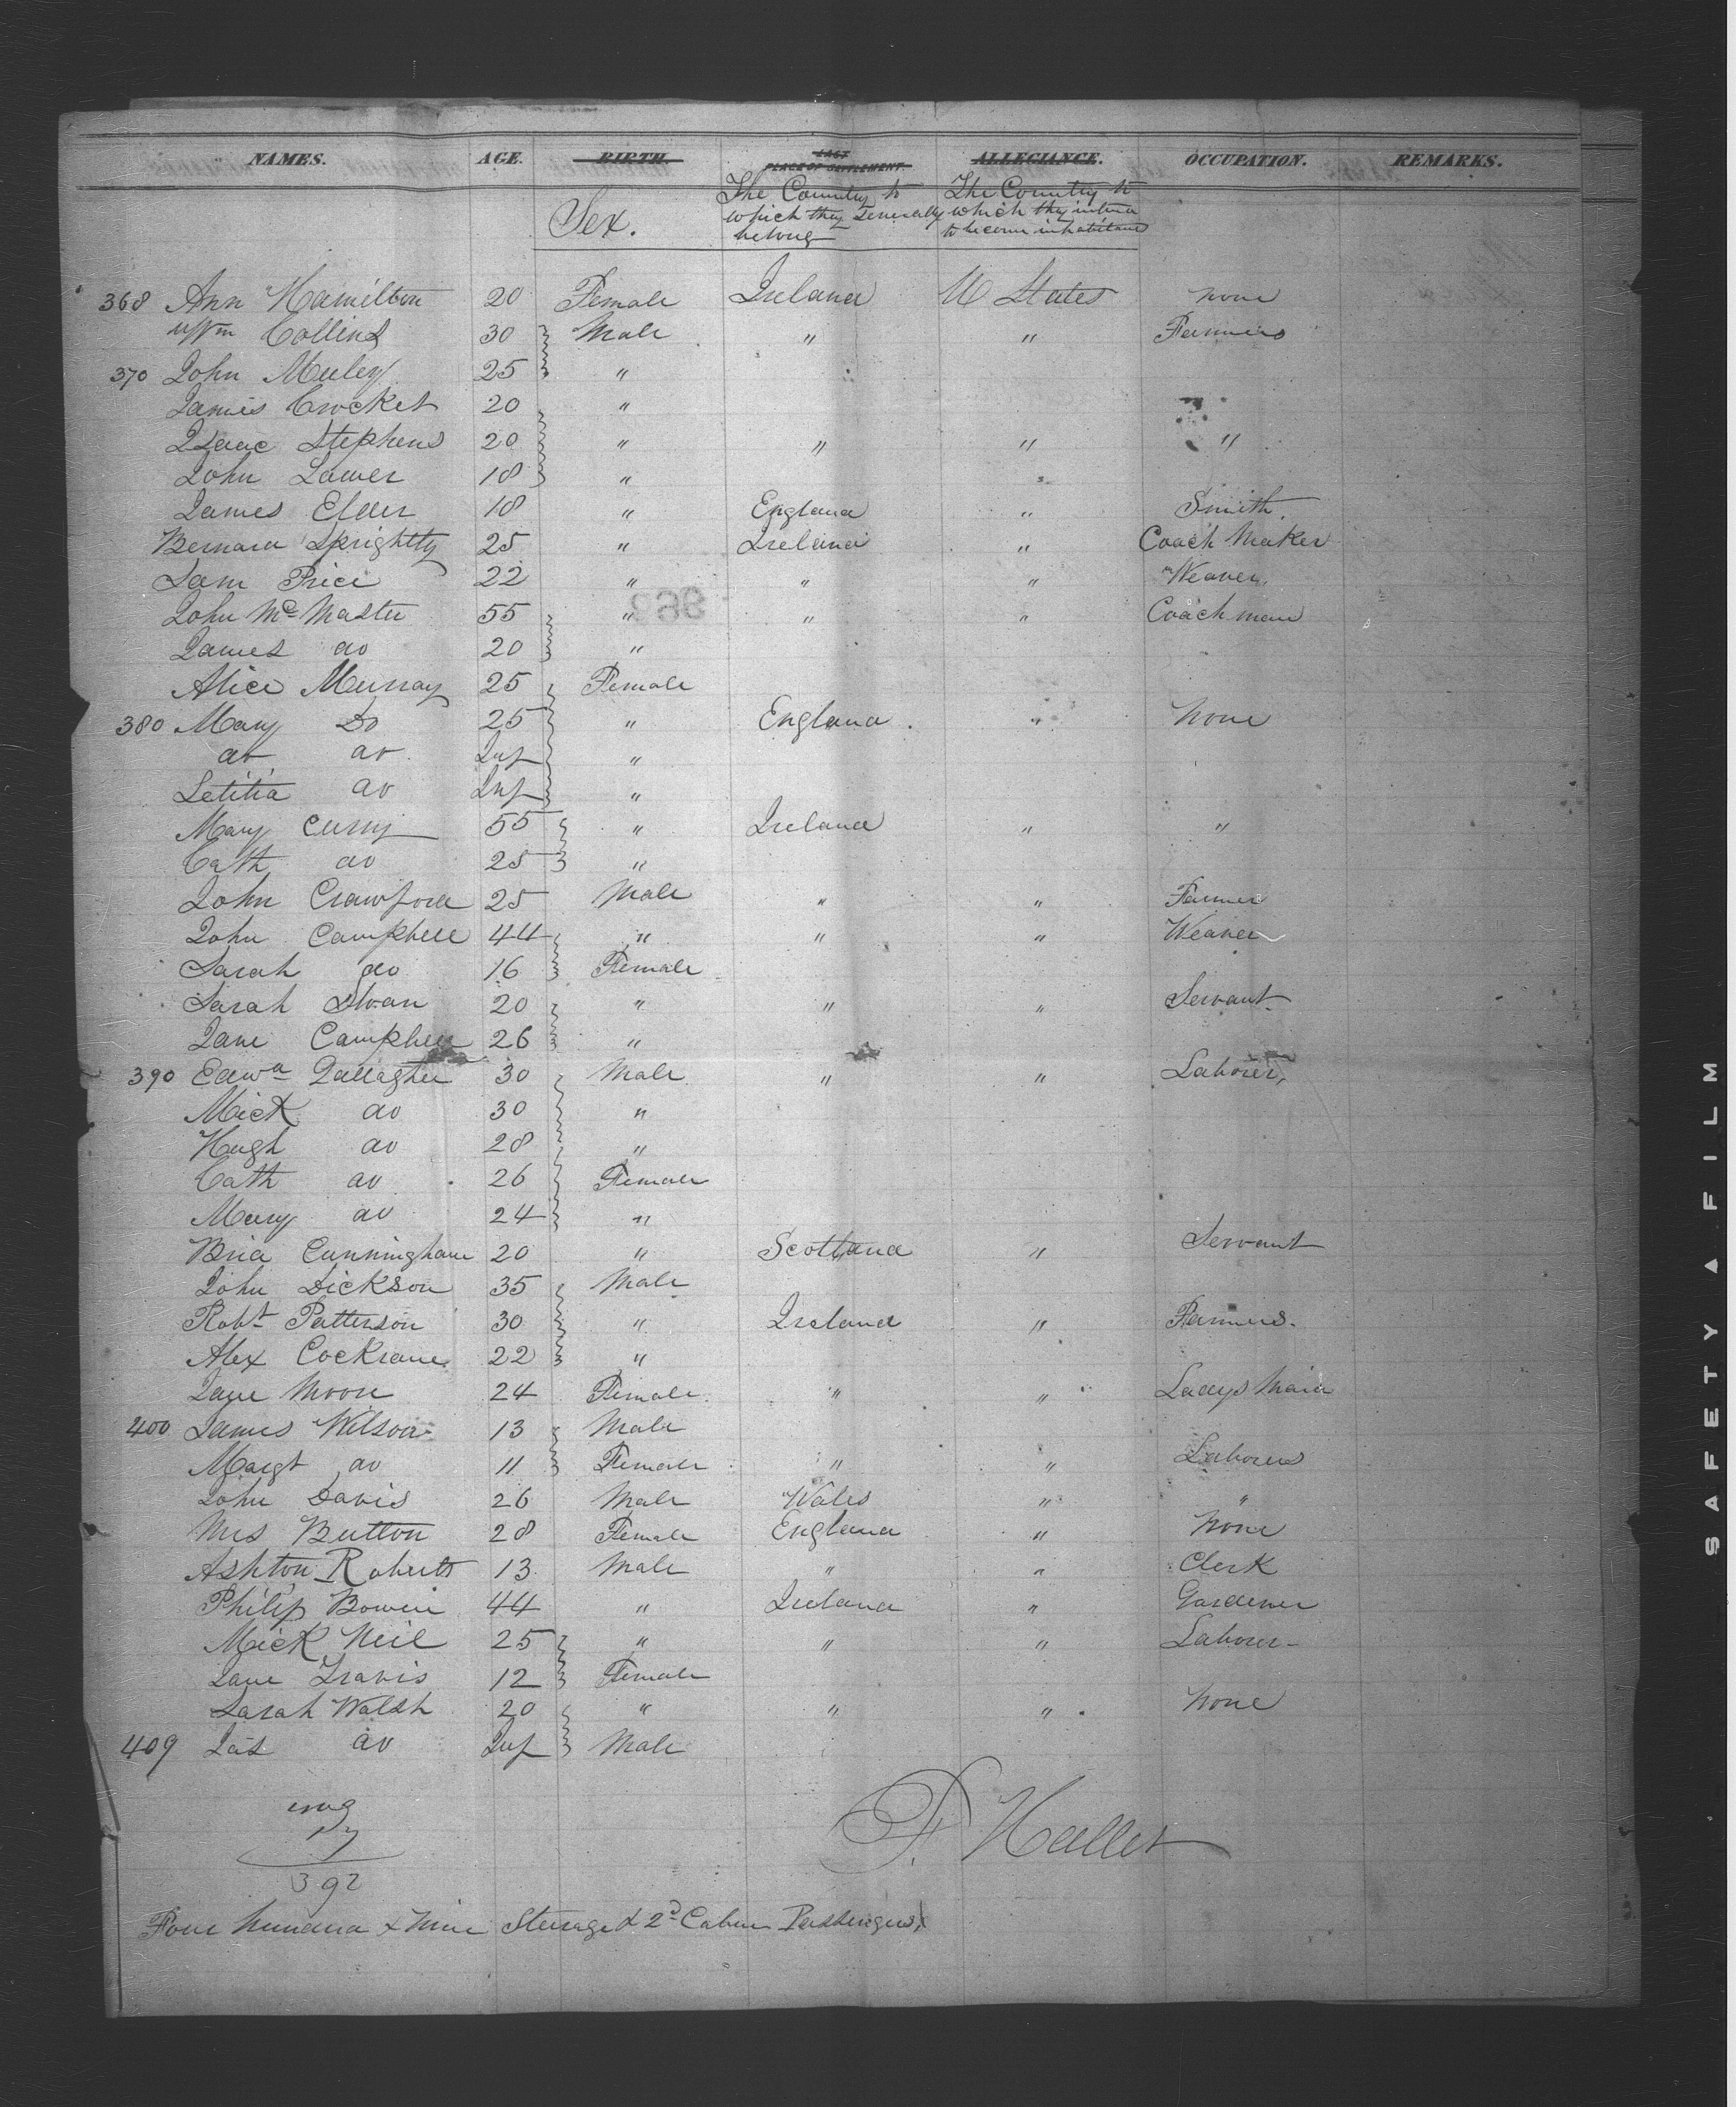 NAMES. AGE. BIRTH. LAST PLACE OF SETTLEMENT. ALLEGIANCE. OCCUPATION. REMARKS.
Sex. The Country to which they Generally belong The Country to which they intend to become inhabitants
368 Ann Hamilton 20 Female Ireland U States None
Wm Collins 30 Male " " Farmers
370 John Muley 25 "
James Crocket 20 "
Isaac Stephens 20 " " " "
John Lawer 18 "
James Elder 18 " England " Smith
Bernard Sprightly 25 " Ireland " Coach Maker
Sam Price 22 " " " Weaver
John McMaster 55 " " " Coachman
James do 20 "
Alice Murray 25 Female
380 Mary Do 25 " England " None
do do Inf "
Letitia do Inf "
Mary Curry 55 " Ireland " "
Cath do 25 "
John Crawford 25 Male " " Farmer
John Campbell 44 " " " Weaver
Sarah do 16 Female
Sarah Sloan 20 " " " Servant
Jane Campbell 26 "
390 Edwd Gallagher 30 Male " " Laborer,
Mick do 30 "
Hugh do 28 "
Cath do 26 Female
Mary do 24 "
Brid Cunningham 20 " Scotland " Servant
John Dickson 35 Male
Robt Patterson 30 " Ireland " Farmers.
Alex Cockrane 22 "
Jane Moore 24 Female " " Ladys Maid
400 James Wilson 13 Male
Margt do 11 Female " " Laborers
John Davis 26 Male Wales " "
Mrs Button 28 Female England " None
Ashton Roberts 13 Male " " Clerk
Philip Bowen 44 " Ireland " Gardener
Mick Neil 25 " " " Laborer
Jane Travis 12 Female
Sarah Walsh 20 " " " None
409 Jas do Inf Male
392
P. Hallet
Four hundred & Nine Steerage & 2d Cabin Passengers
SAFETY A FILM